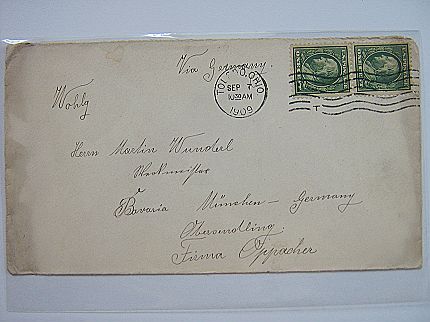 Via Germany.
TOLEDO, OHIO
SEP 7
10:30 AM
1909
T
Wohlg
Herrn Martin Wunderl
Werkmeister
Bavaria München - Germany
Obersendling.
Firma Oppacher